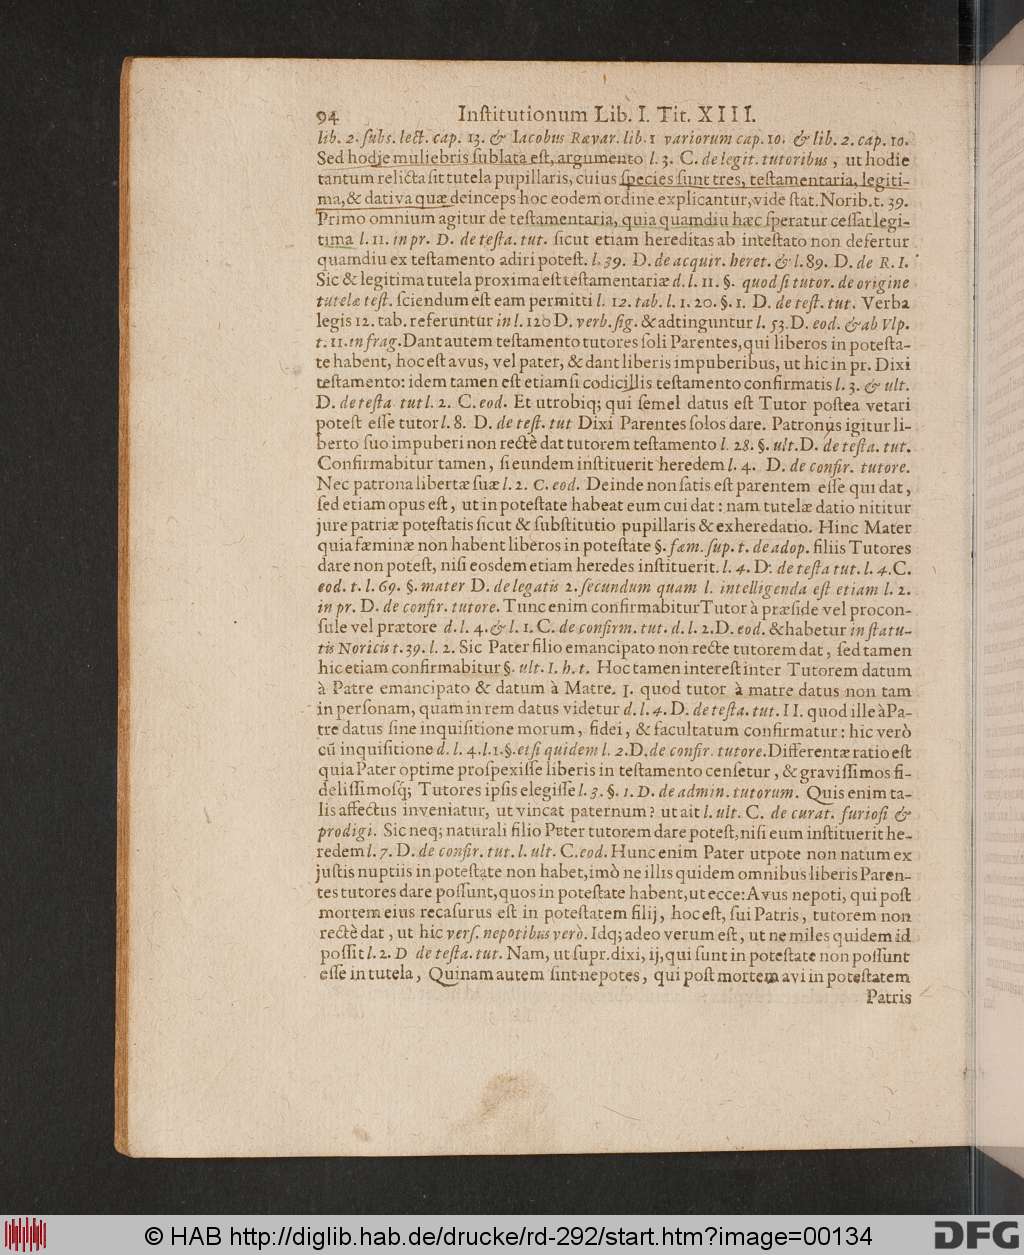 94 Inſtitutionum Lib. I. Tit. XIII.
lib. 2. ſubs. lect. cap. 13. & Iacobus Rævar. lib. 1 variorum cap. 10. & lib. 2. cap. 10.
Sed hodie muliebris ſublata eſt, argumento l. 3. C. de legit. tutoribus, ut hodie
tantum relicta ſit tutela pupillaris, cuius ſpecies ſunt tres, teſtamentaria, legiti-
ma, & dativa quæ deinceps hoc eodem ordine explicantur, vide ſtat. Norib. t. 39.
Primo omnium agitur de teſtamentaria, quia quamdiu hæc ſperatur ceſſat legi-
tima l. 11. in pr. D. de teſta. tut. ſicut etiam hereditas ab inteſtato non defertur
quamdiu ex teſtamento adiri poteſt. l. 39. D. de acquir. heret. & l. 89. D. de R. I.
Sic & legitima tutela proxima eſt teſtamentariæ d. l. 11. §. quod ſi tutor. de origine
tutelæ teſt. ſciendum eſt eam permitti l. 12. tab. l. 1. 20. §. 1. D. de teſt. tut. Verba
legis 12. tab. referuntur in l. 120 D. verb. ſig. & adtinguntur l. 53. D. eod. & ab Vlp.
t. 11. in frag. Dant autem teſtamento tutores ſoli Parentes, qui liberos in poteſta-
te habent, hoc eſt avus, vel pater, & dant liberis impuberibus, ut hic in pr. Dixi
teſtamento: idem tamen eſt etiamſi codicillis teſtamento confirmatis l. 3. & ult.
D. de teſta tut l. 2. C. eod. Et utrobiq; qui ſemel datus eſt Tutor poſtea vetari
poteſt eſſe tutor l. 8. D. de teſt. tut Dixi Parentes ſolos dare. Patronus igitur li-
berto ſuo impuberi non rectè dat tutorem teſtamento l. 28. §. ult. D. de teſta. tut.
Confirmabitur tamen, ſi eundem inſtituerit heredem l. 4. D. de confir. tutore.
Nec patrona libertæ ſuæ l. 2. C. eod. Deinde non ſatis eſt parentem eſſe qui dat,
ſed etiam opus eſt, ut in poteſtate habeat eum cui dat: nam tutelæ datio nititur
jure patriæ poteſtatis ſicut & ſubſtitutio pupillaris & exheredatio. Hinc Mater
quia fæminæ non habent liberos in poteſtate §. fæm. ſup. t. de adop. filiis Tutores
dare non poteſt, niſi eosdem etiam heredes inſtituerit. l. 4. D. de teſta tut. l. 4. C.
eod. t. l. 69. §. mater D. de legatis 2. ſecundum quam l. intelligenda eſt etiam l. 2.
in pr. D. de confir. tutore. Tunc enim confirmabitur Tutor à præſide vel procon-
ſule vel prætore d. l. 4. & l. 1. C. de confirm. tut. d. l. 2. D. eod. & habetur in ſtatu-
tis Noricis t. 39. l. 2. Sic Pater filio emancipato non recte tutorem dat, ſed tamen
hic etiam confirmabitur §. ult. I. h. t. Hoc tamen intereſt inter Tutorem datum
à Patre emancipato & datum à Matre. I. quod tutor à matre datus non tam
in perſonam, quam in rem datus videtur d. l. 4. D. de teſta. tut. II. quod ille à Pa-
tre datus ſine inquiſitione morum, fidei, & facultatum confirmatur: hic verò
cũ inquiſitione d. l. 4. l. 1. §. etſi quidem l. 2. D. de confir. tutore. Differentæ ratio eſt
quia Pater optime proſpexiſſe liberis in teſtamento cenſetur, & graviſſimos fi-
deliſſimoſq; Tutores ipſis elegiſſe l. 3. §. 1. D. de admin. tutorum. Quis enim ta-
lis affectus inveniatur, ut vincat paternum? ut ait l. ult. C. de curat. furioſi &
prodigi. Sic neq; naturali filio Pater tutorem dare poteſt, niſi eum inſtituerit he-
redem l. 7. D. de confir. tut. l. ult. C. eod. Hunc enim Pater utpote non natum ex
juſtis nuptiis in poteſtate non habet, imò ne illis quidem omnibus liberis Paren-
tes tutores dare poſſunt, quos in poteſtate habent, ut ecce: Avus nepoti, qui poſt
mortem eius recaſurus eſt in poteſtatem filij, hoc eſt, ſui Patris, tutorem non
rectè dat, ut hic verſ. nepotibus verò. Idq; adeo verum eſt, ut ne miles quidem id
poſſit l. 2. D de teſta. tut. Nam, ut ſupr. dixi, ij, qui ſunt in poteſtate non poſſunt
eſſe in tutela, Quinam autem ſint nepotes, qui poſt mortem avi in poteſtatem
Patris
© HAB http://diglib.hab.de/drucke/rd-292/start.htm?image=00134
DFG